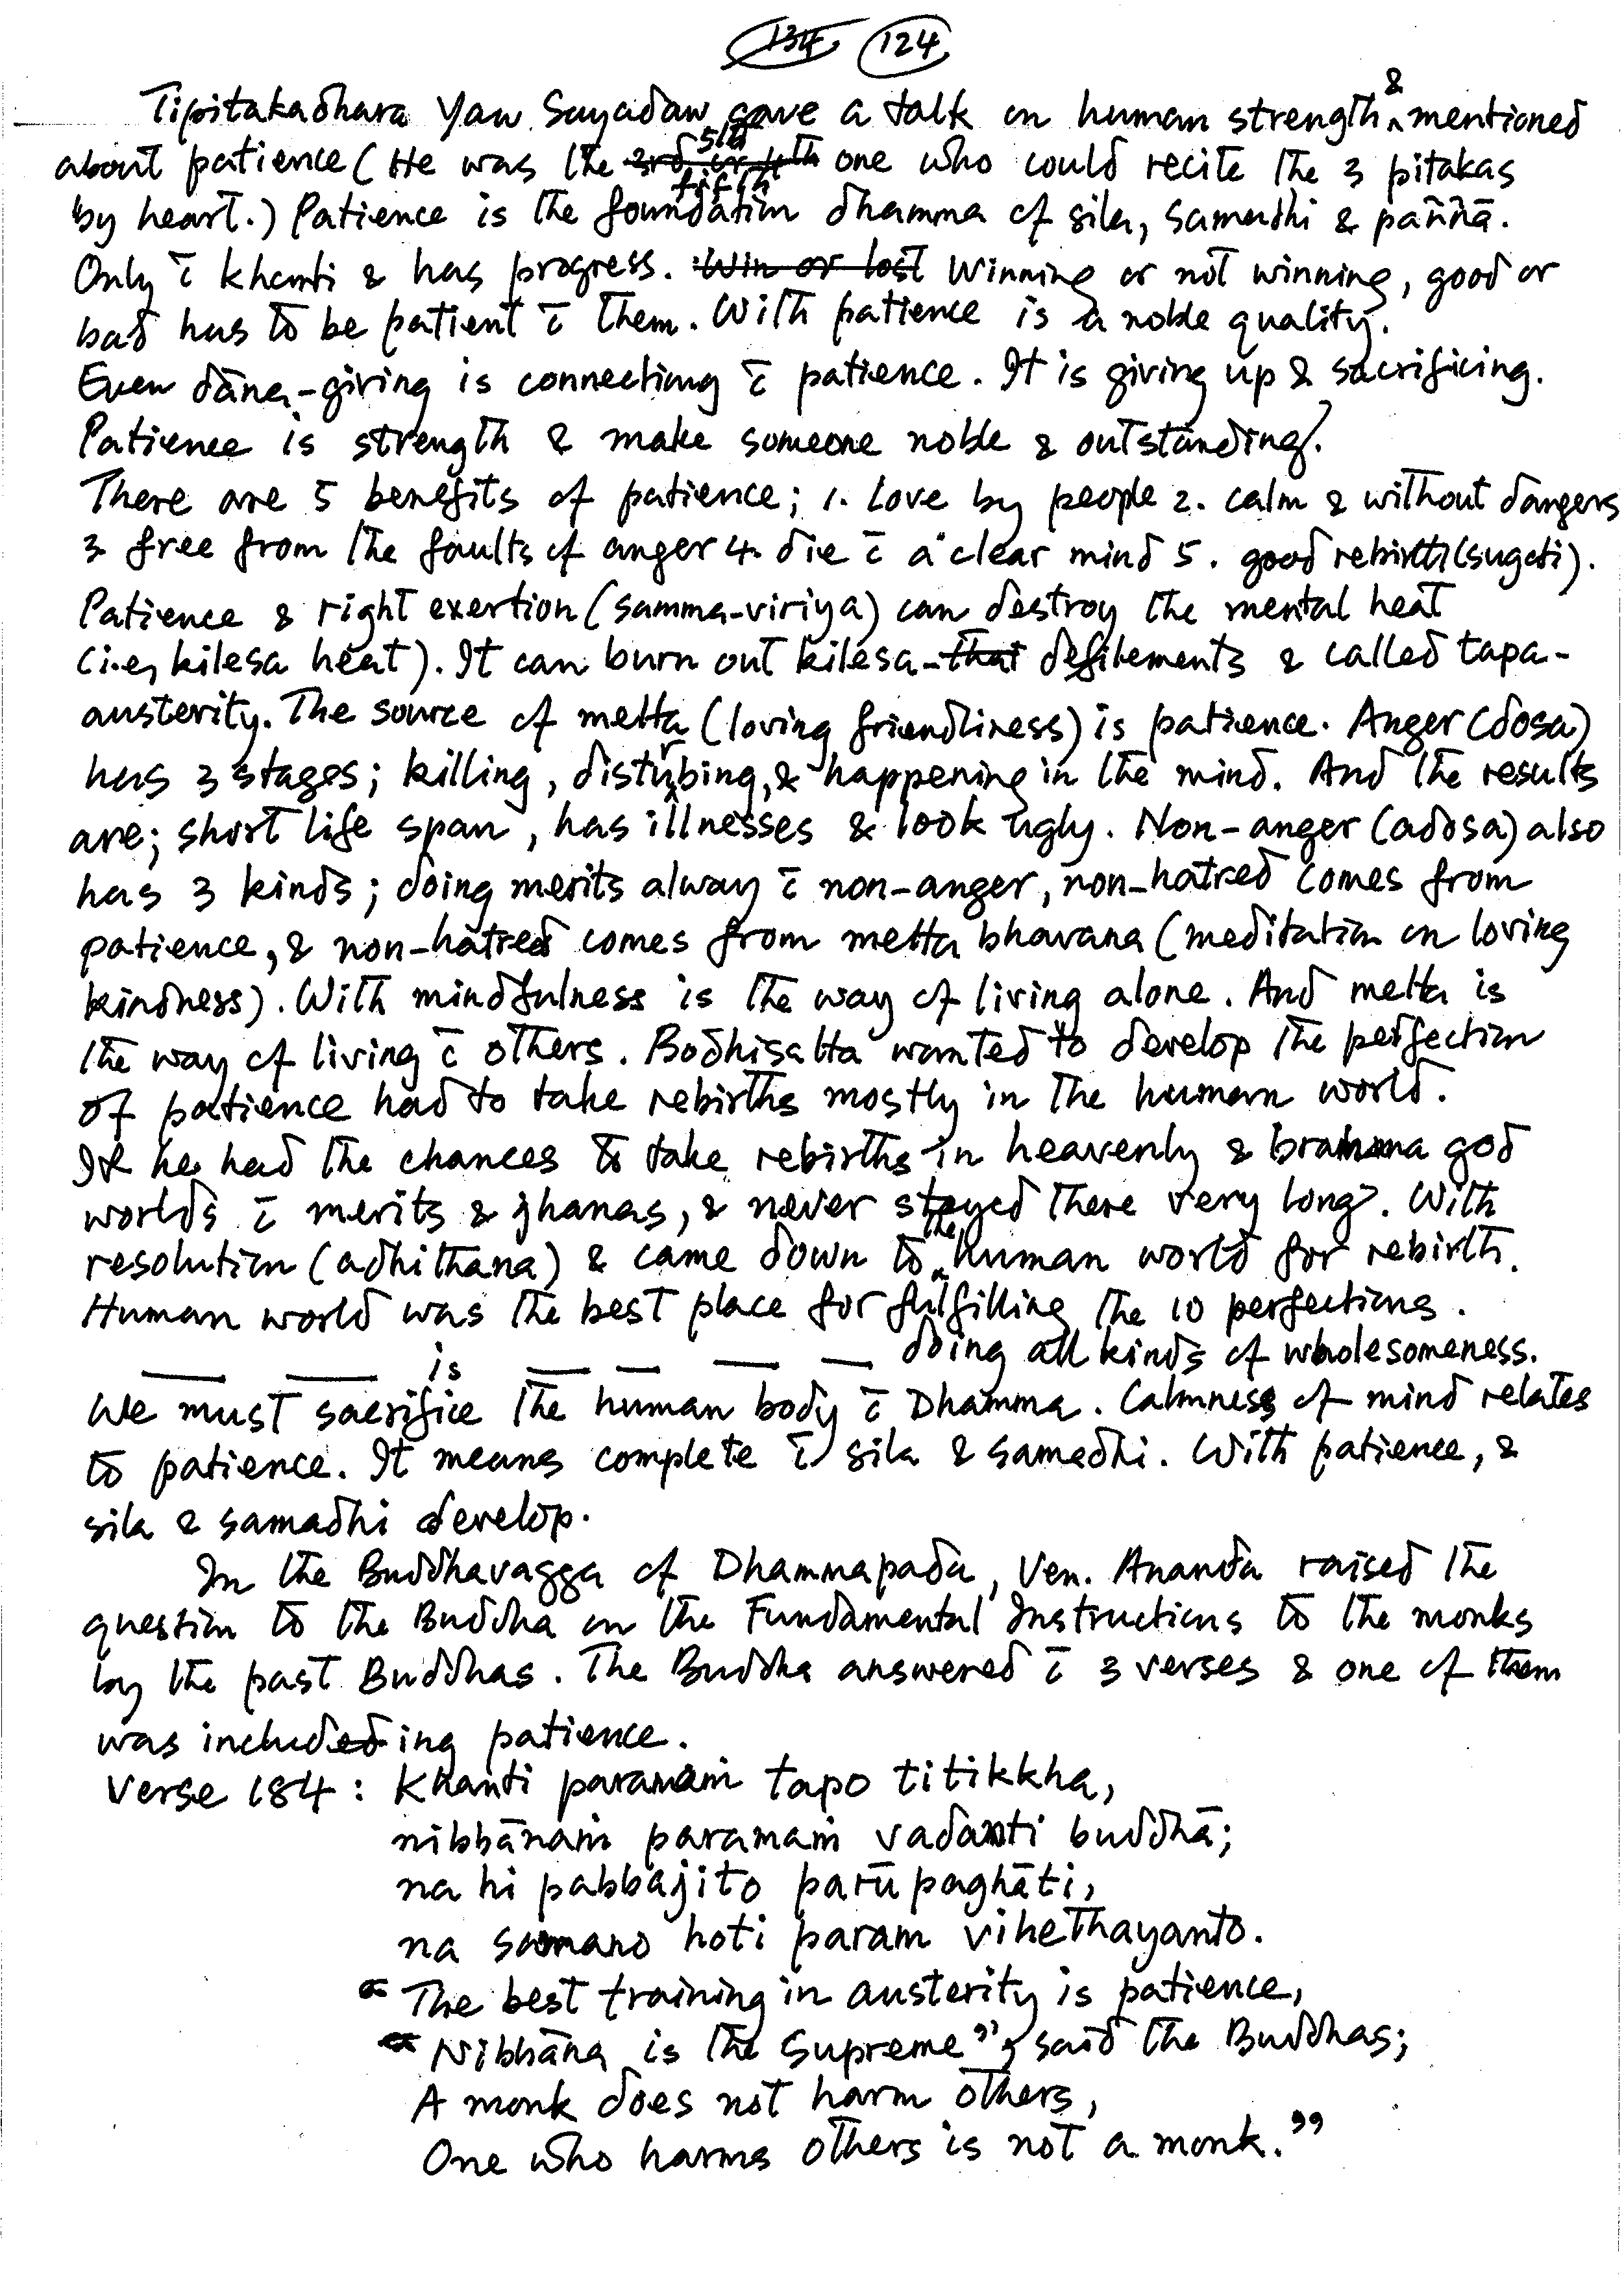 134 124
Tipitakadhara Yaw Sayadaw gave a talk on human strength & mentioned
about patience (He was the 3rd or 4th 5th fifth one who could recite the 3 pitakas
by heart.) Patience is the foundation dhamma of sila, samadhi & paññā.
Only c̄ khanti & has progress. Win or lost Winning or not winning, good or
bad has to be patient c̄ them. With patience is a noble quality.
Even dāna-giving is connecting c̄ patience. It is giving up & sacrificing.
Patience is strength & make someone noble & outstanding.
There are 5 benefits of patience; 1. Love by people 2. calm & without dangers
3 free from the faults of anger 4. die c̄ a clear mind 5. good rebirth (sugati).
Patience & right exertion (samma-viriya) can destroy the mental heat
(i.e, kilesa heat). It can burn out kilesa-that defilements & called tapa-
austerity. The source of metta (loving friendliness) is patience. Anger (dosa)
has 3 stages; killing, disturbing, & happening in the mind. And the results
are; short life span, has illnesses & look ugly. Non-anger (adosa) also
has 3 kinds; doing merits alway c̄ non-anger, non-hatred comes from
patience, & non-hatred comes from metta bhavana (meditation on loving
kindness). With mindfulness is the way of living alone. And metta is
the way of living c̄ others. Bodhisatta wanted to develop the perfection
of patience had to take rebirths mostly in the human world.
If he had the chances to take rebirths in heavenly & brahma god
worlds c̄ merits & jhanas, & never stayed there very long. With
resolution (adhithana) & came down to the human world for rebirth.
Human world was the best place for fulfilling the 10 perfections.
— — is — — — — doing all kinds of wholesomeness.
We must sacrifice the human body c̄ Dhamma. Calmness of mind relates
to patience. It means complete c̄ sila & samadhi. With patience, &
sila & samadhi develop.
In the Buddhavagga of Dhammapada, Ven. Ananda raised the
question to the Buddha on the Fundamental Instructions to the monks
by the past Buddhas. The Buddha answered c̄ 3 verses & one of them
was included ing patience.
Verse 184: Khanti paramaṁ tapo titikkha,
nibbānaṁ paramaṁ vadanti buddhā;
na hi pabbajito parūpaghāti,
na samano hoti param vihethayanto.
“The best training in austerity is patience,
“Nibbāna is the Supreme”, said the Buddhas;
A monk does not harm others,
One who harms others is not a monk.”